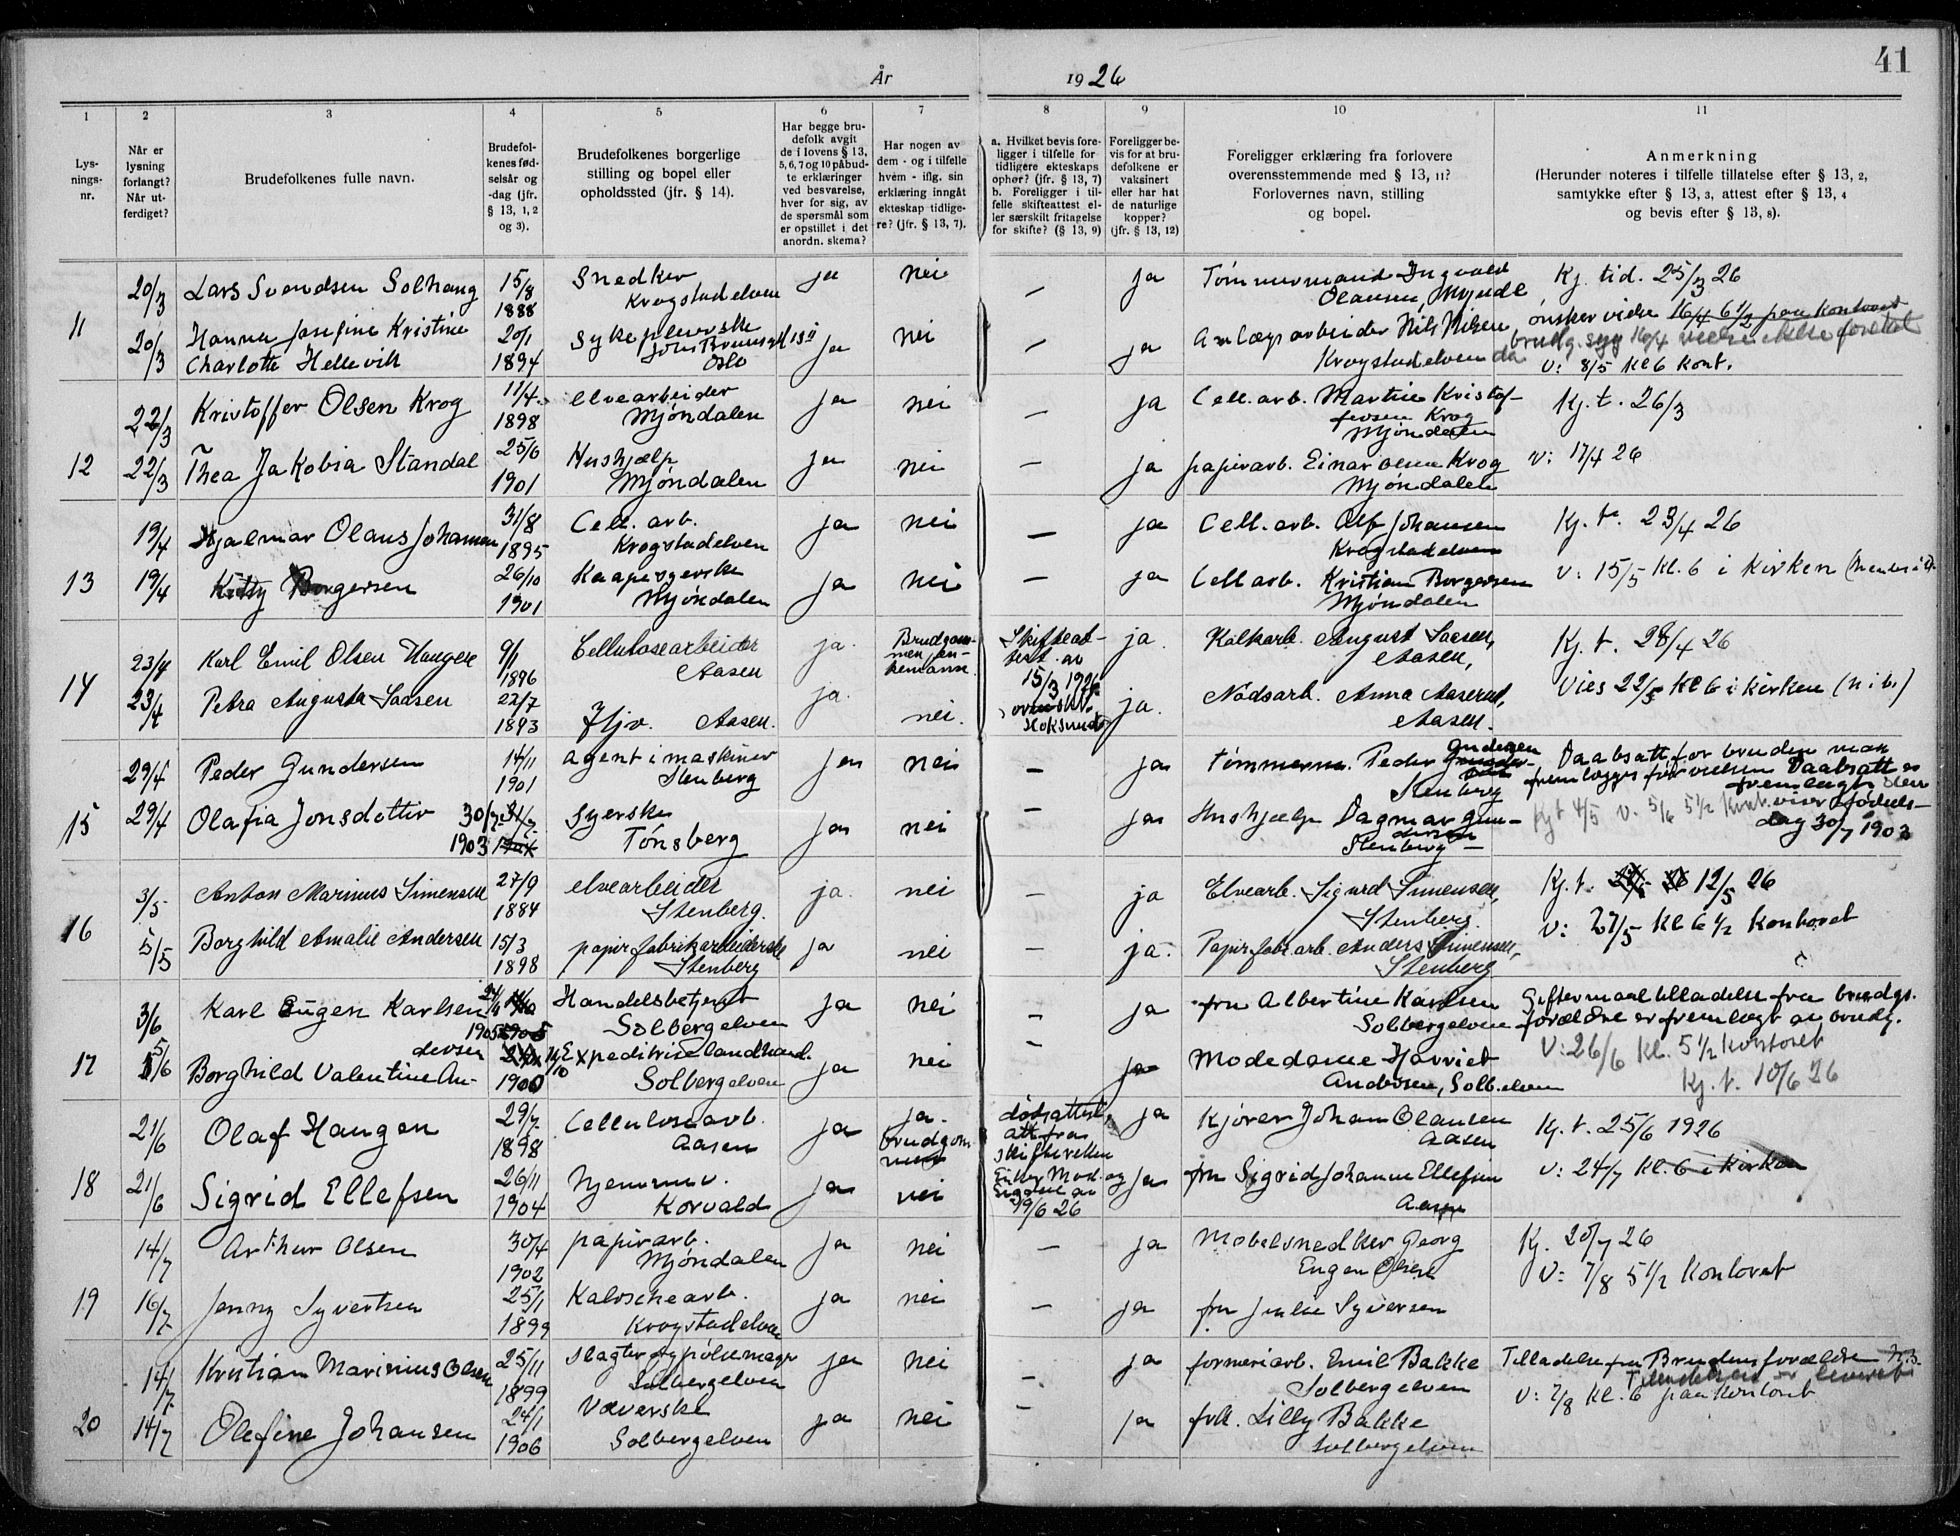 41
År 1926
1
2
3
4
5
6
7
8
9
10
11
Lys-
nings-
nr.
Når er
lysning
forlangt?
Når ut-
ferdiget?
Brudefolkenes fulle navn.
Brudefol-
kenes fød-
selsår og
-dag (jfr.
§ 13, 1, 2
og 3).
Brudefolkenes borgerlige
stilling og bopel eller
opholdssted (jfr. § 14).
Har begge bru-
defolk avgit
de i lovens § 13,
5, 6, 7 og 10 påbud-
te erklæringer
ved besvarelse,
hver for sig, av
de spørsmål som
er opstillet i det
anordn. skema?
Har nogen av
dem - og i tilfelle
hvem - iflg. sin
erklæring inngått
ekteskap tidlige-
re? (jfr. § 13, 7).
a. Hvilket bevis fore-
ligger i tilfelle for
tidligere ekteskaps
ophør? (jfr. § 13, 7)
b. Foreligger i til-
felle skifteattest el-
ler særskilt fritagelse
for skifte? (§ 13, 9)
Foreligger be-
vis for at bru-
defolkene er
vaksinert
eller har hat
de naturlige
kopper?
(jfr. § 13, 12)
Foreligger erklæring fra forlovere
overensstemmende med § 13, 11?
Forlovernes navn, stilling
og bopel.
Anmerkning
(Herunder noteres i tilfelle tillatelse efter § 13, 2,
samtykke efter § 13, 3, attest efter § 13, 4
og bevis efter § 13, 8).
11
20/3 Lars Svendsen Solhaug 15/8 1888 Snedker Krogstadelven ja nei — ja Tømmermand Ingvald Olausen, Mjøndl Kj. tid. 25/3 26
ønsker vielse 16/4 6 1/2 paa kontoret
20/3 Hanna Josefine Kristine Charlotte Hellevik 20/1 1894 Sykepleierske Oslo ja nei — ja Anlægsarbeider Nils Nilsen Krogstadelven
brudg. syg 16/4 vielse ikke foretat
V: 8/5 kl 6 kont.
12
22/3 Kristoffer Olsen Krog 11/4 1898 elvearbeider Mjøndalen ja nei — ja Cell. arb. Martin Kristoffersen Krog Mjøndalen Kj. t. 26/3
22/3 Thea Jakobia Standal 25/6 1901 Hushjælp Mjøndalen ja nei — ja papirarb. Einar Olsen Krog Mjøndalen V: 17/4 26
13
19/4 Hjalmar Olaus Johansen 31/8 1895 Cell. arb. Krogstadelven ja nei — ja Cell. arb. Alf Johansen Krogstadelven Kj. t. 23/4 26
19/4 Kitty Borgersen 26/10 1901 Kaapesyerske Mjøndalen ja nei — ja Cell arb. Kristian Borgersen Mjøndalen V: 15/5 kl. 6 i kirken
14
23/4 Karl Emil Olsen Haugen 9/1 1896 Cellulosearbeider Aasen ja. Brudgommen enkemann Skifteattest av 15/3 1926 Hoksund ja. Kalkarb. August Saasen, Aasen, Kj. t. 28/4 26
23/4 Petra Augusta Saasen 22/7 1893 Hjv. Aasen. ja. nei. ja. Anna Aaserud, Aasen. Vies 22/5 kl 6 i kirken (n. i b.)
15
29/4 Peder Gundersen 14/11 1901 agent i maskiner Stenberg ja nei — ja tømmerm. Peder Gundersen Stenberg Daabsatt for bruden maa fremlægges før vielsen Daabsatt er fremlagt
29/4 Olafia Jonsdottir 30/7 1903 Syerske Tønsberg ja nei — ja Hushjælp Dagmar Gundersen Stenberg — Kj t 4/5 V. 5/6 5 1/2 Kont. viser fødselsdag 30/7 1903
16
3/5 Anton Marinus Simensen 27/9 1884 elvearbeider Stenberg. ja. nei — ja Elvearb. Sigurd Simensen, Stenberg. Kj. t. 12/5 26
5/5 Borghild Amalie Andersen 15/3 1898 papirfabrikarbeiderske Stenberg ja nei — ja. Papirfabr. arb. Anders Simensen, Stenberg V: 27/5 kl 6 1/2 kontoret
17
3/6 Karl Eugen Karlsen 1905 Handelsbetjent Solbergelven ja nei — ja fru Albertine Karlsen Solbergelven Giftermaalstilladelse fra brudgs. forældre er fremlagt av brudg.
5/6 Borghild Valentine Andersen 11/10 1900 Expeditrise landhand. Solbergelven ja nei — ja Modedame Harriet Andersen, Solb.elven V: 26/6 kl. 5 1/2 kontoret
Kj. t. 10/6 26
18
21/6 Olaf Haugen 29/7 1898 Cellulosearb. Aasen ja ja. brudgommen dødsattest, att fra skifteretten ja Kjører Johan Olausen Aasen Kj. t. 25/6 1926
21/6 Sigrid Ellefsen 26/11 1904 hjemmev. Korvald ja nei Eiker Mod. og Sigdal av 19/6 26 ja fru Sigrid Johanne Ellefsen Aasen V: 24/7 kl. 6 i kirken
19
14/7 Arthur Olsen 30/4 1902 papirarb. Mjøndalen ja nei — ja Møbelsnedker Georg Eugen Olsen Kj. 20/7 26
16/7 Jenny Syvertsen 25/1 1899 Kaloschearb. Krogstadelven ja nei — ja fru Julie Syversen V: 7/8 5 1/2 kontoret
20
14/7 Kristian Marinius Olsen 25/11 1899 Slagter og pølsemager Solbergelven ja nei — ja formeriarb. Emil Bakke Solbergelven Tilladelse fra Brudens forældre
14/7 Olefine Johansen 24/1 1906 Væverske Solbergelven ja nei — ja frk. Lilly Bakke Solbergelven Tilladelsen er leveret
V: 7/8 kl. 6 paa kontoret